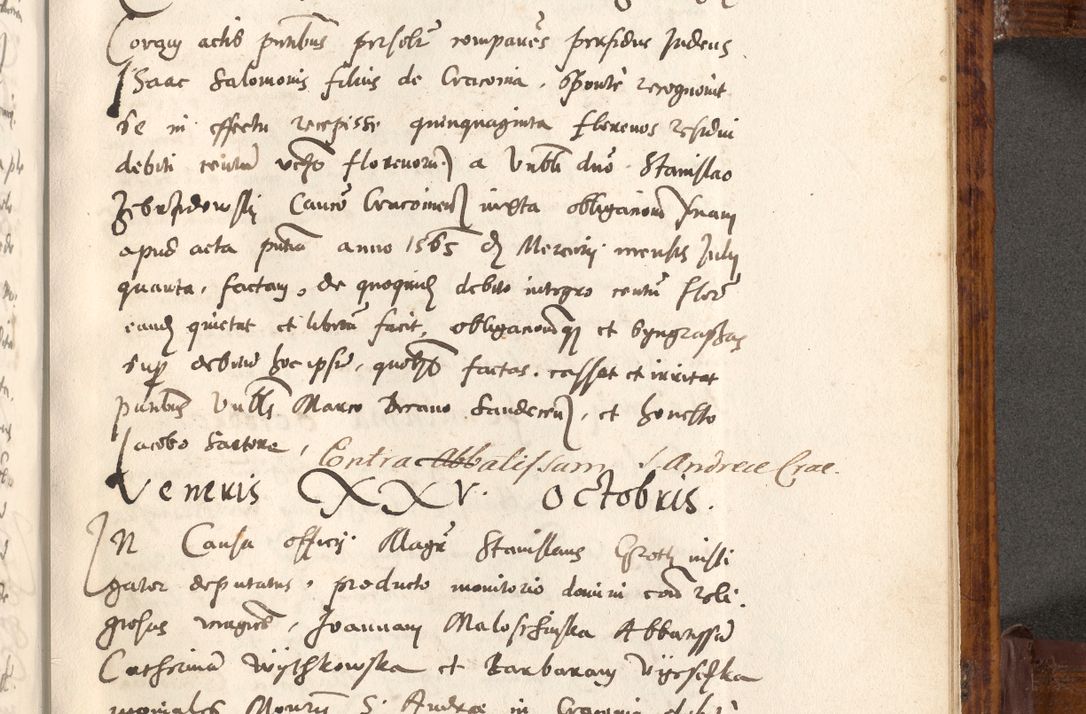 Coram actis pntibus psolr comparens perfidus Judeus
Isaac Salomonis filius de Cracovia, sponte recognovit
se in effectu recepisse quinquaginta florenos residui
debiti centu florenoru a Vnbli dno Stanislao
Zebrzidowskj Canco Cracovien iuxta obligationem
apud acta pntia anno 1565 die Mercurij mensis Julij
quarta, factam, de quoquidem debito integro centu flor
eund quietat et liberu facit, obligationemqz et syngraphas
sup debitu hoc ipsu, factas, cassat et irritat
pntibus Vnbli Marco Decano Sandecen, et honesto
Jacobo Sartore,
Contra Abbatissam S. Andreæ Crac.
Veneris XXV. Octobris.
IN Causa officij Magr Stanislaus Grotj insti
gator deputatus, producto monitorio domini con reli
giosas virgines, Joannam Maloschinska Abbatissa
Catherina Wythkowska et Barbaram
moniales Monrij S. Andreæ in Cracovia